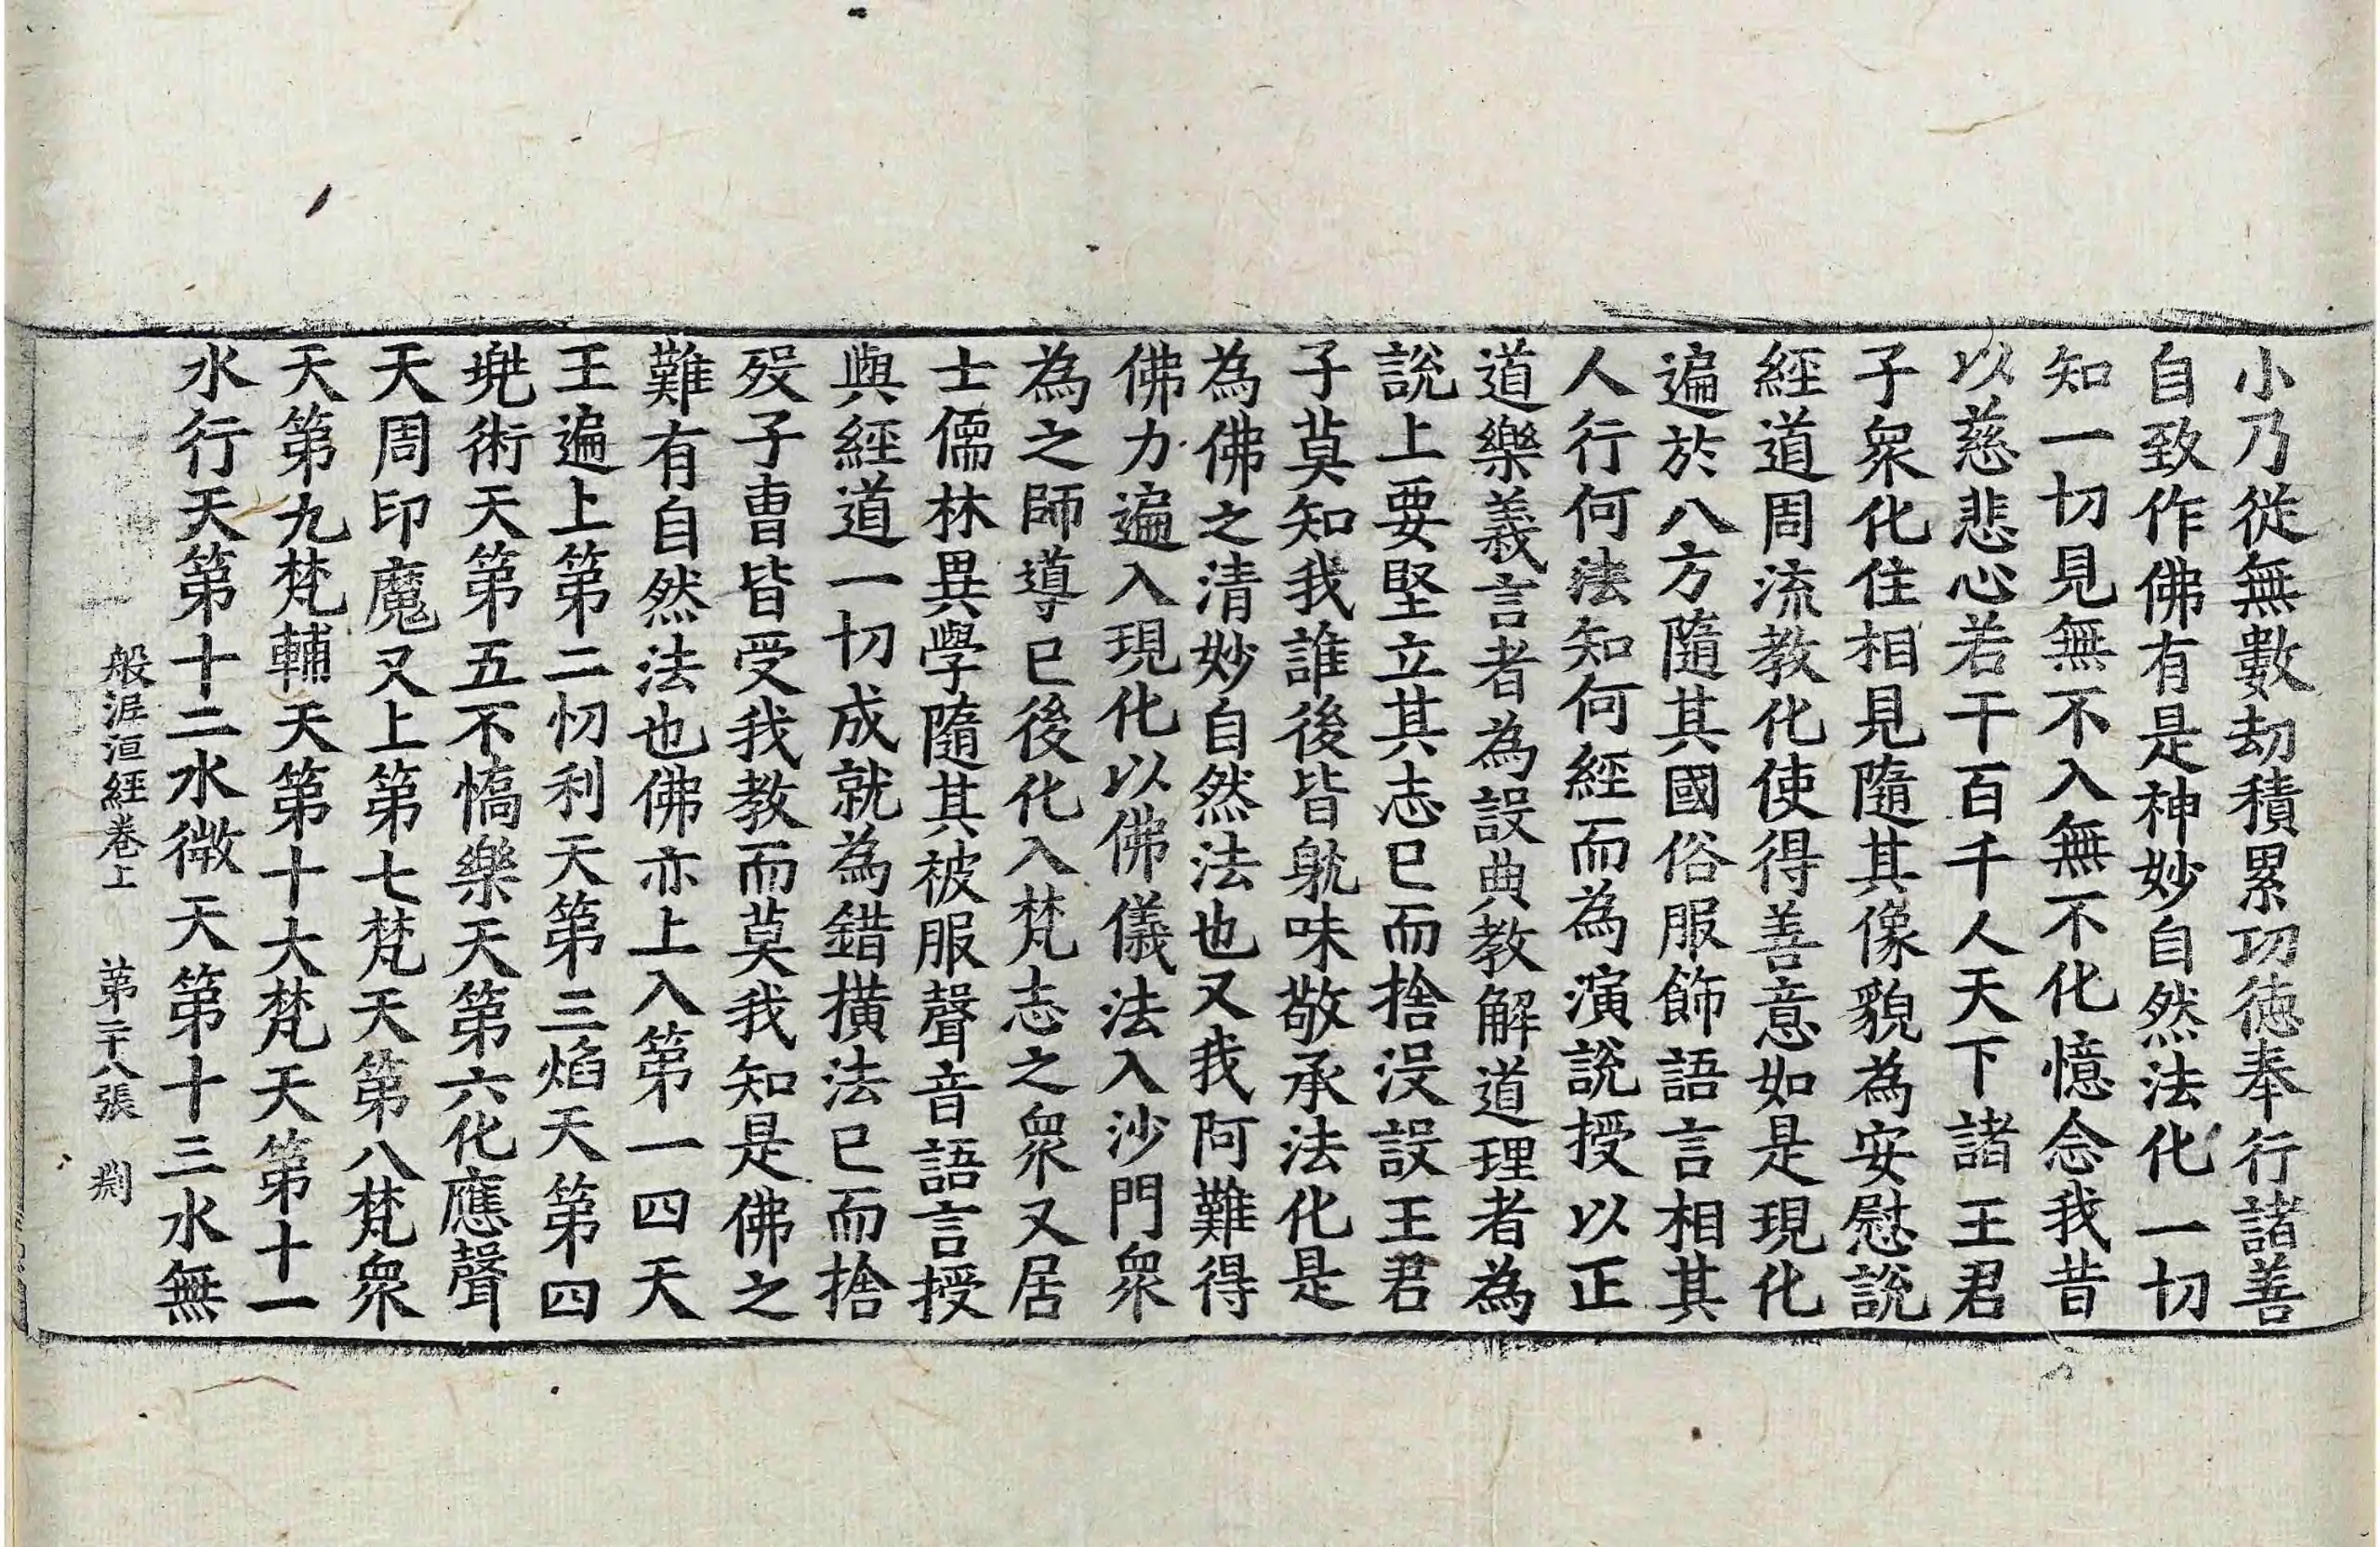 小乃從無數劫積累功德奉行諸善
自致作佛有是神妙自然法化一切
知一切見無不入無不化憶念我昔
以慈悲心若干百千人天下諸王君
子衆化住相見隨其像貌為安慰說
經道周流教化使得善意如是現化
遍於八方隨其國俗服飾語言相其
人行何法知何經而為演說授以正
道樂義言者為設典教解道理者為
說上要堅立其志已而捨沒設王君
子莫知我誰後皆躭味敬承法化是
為佛之清妙自然法也又我阿難得
佛力遍入現化以佛儀法入沙門衆
為之師導已後化入梵志之衆又居
士儒林異學隨其被服聲音語言授
與經道一切成就為錯撗法已而捨
歿子曺皆受我教而莫我知是佛之
難有自然法也佛亦上入第一四天
王遍上第二忉利天第三焰天第四
兠術天第五不憍樂天第六化應聲
天周印魔又上第七梵天第八梵衆
天第九梵輔天第十大梵天第十一
水行天第十二水微天第十三水無
般泥洹經卷上　第二十八張